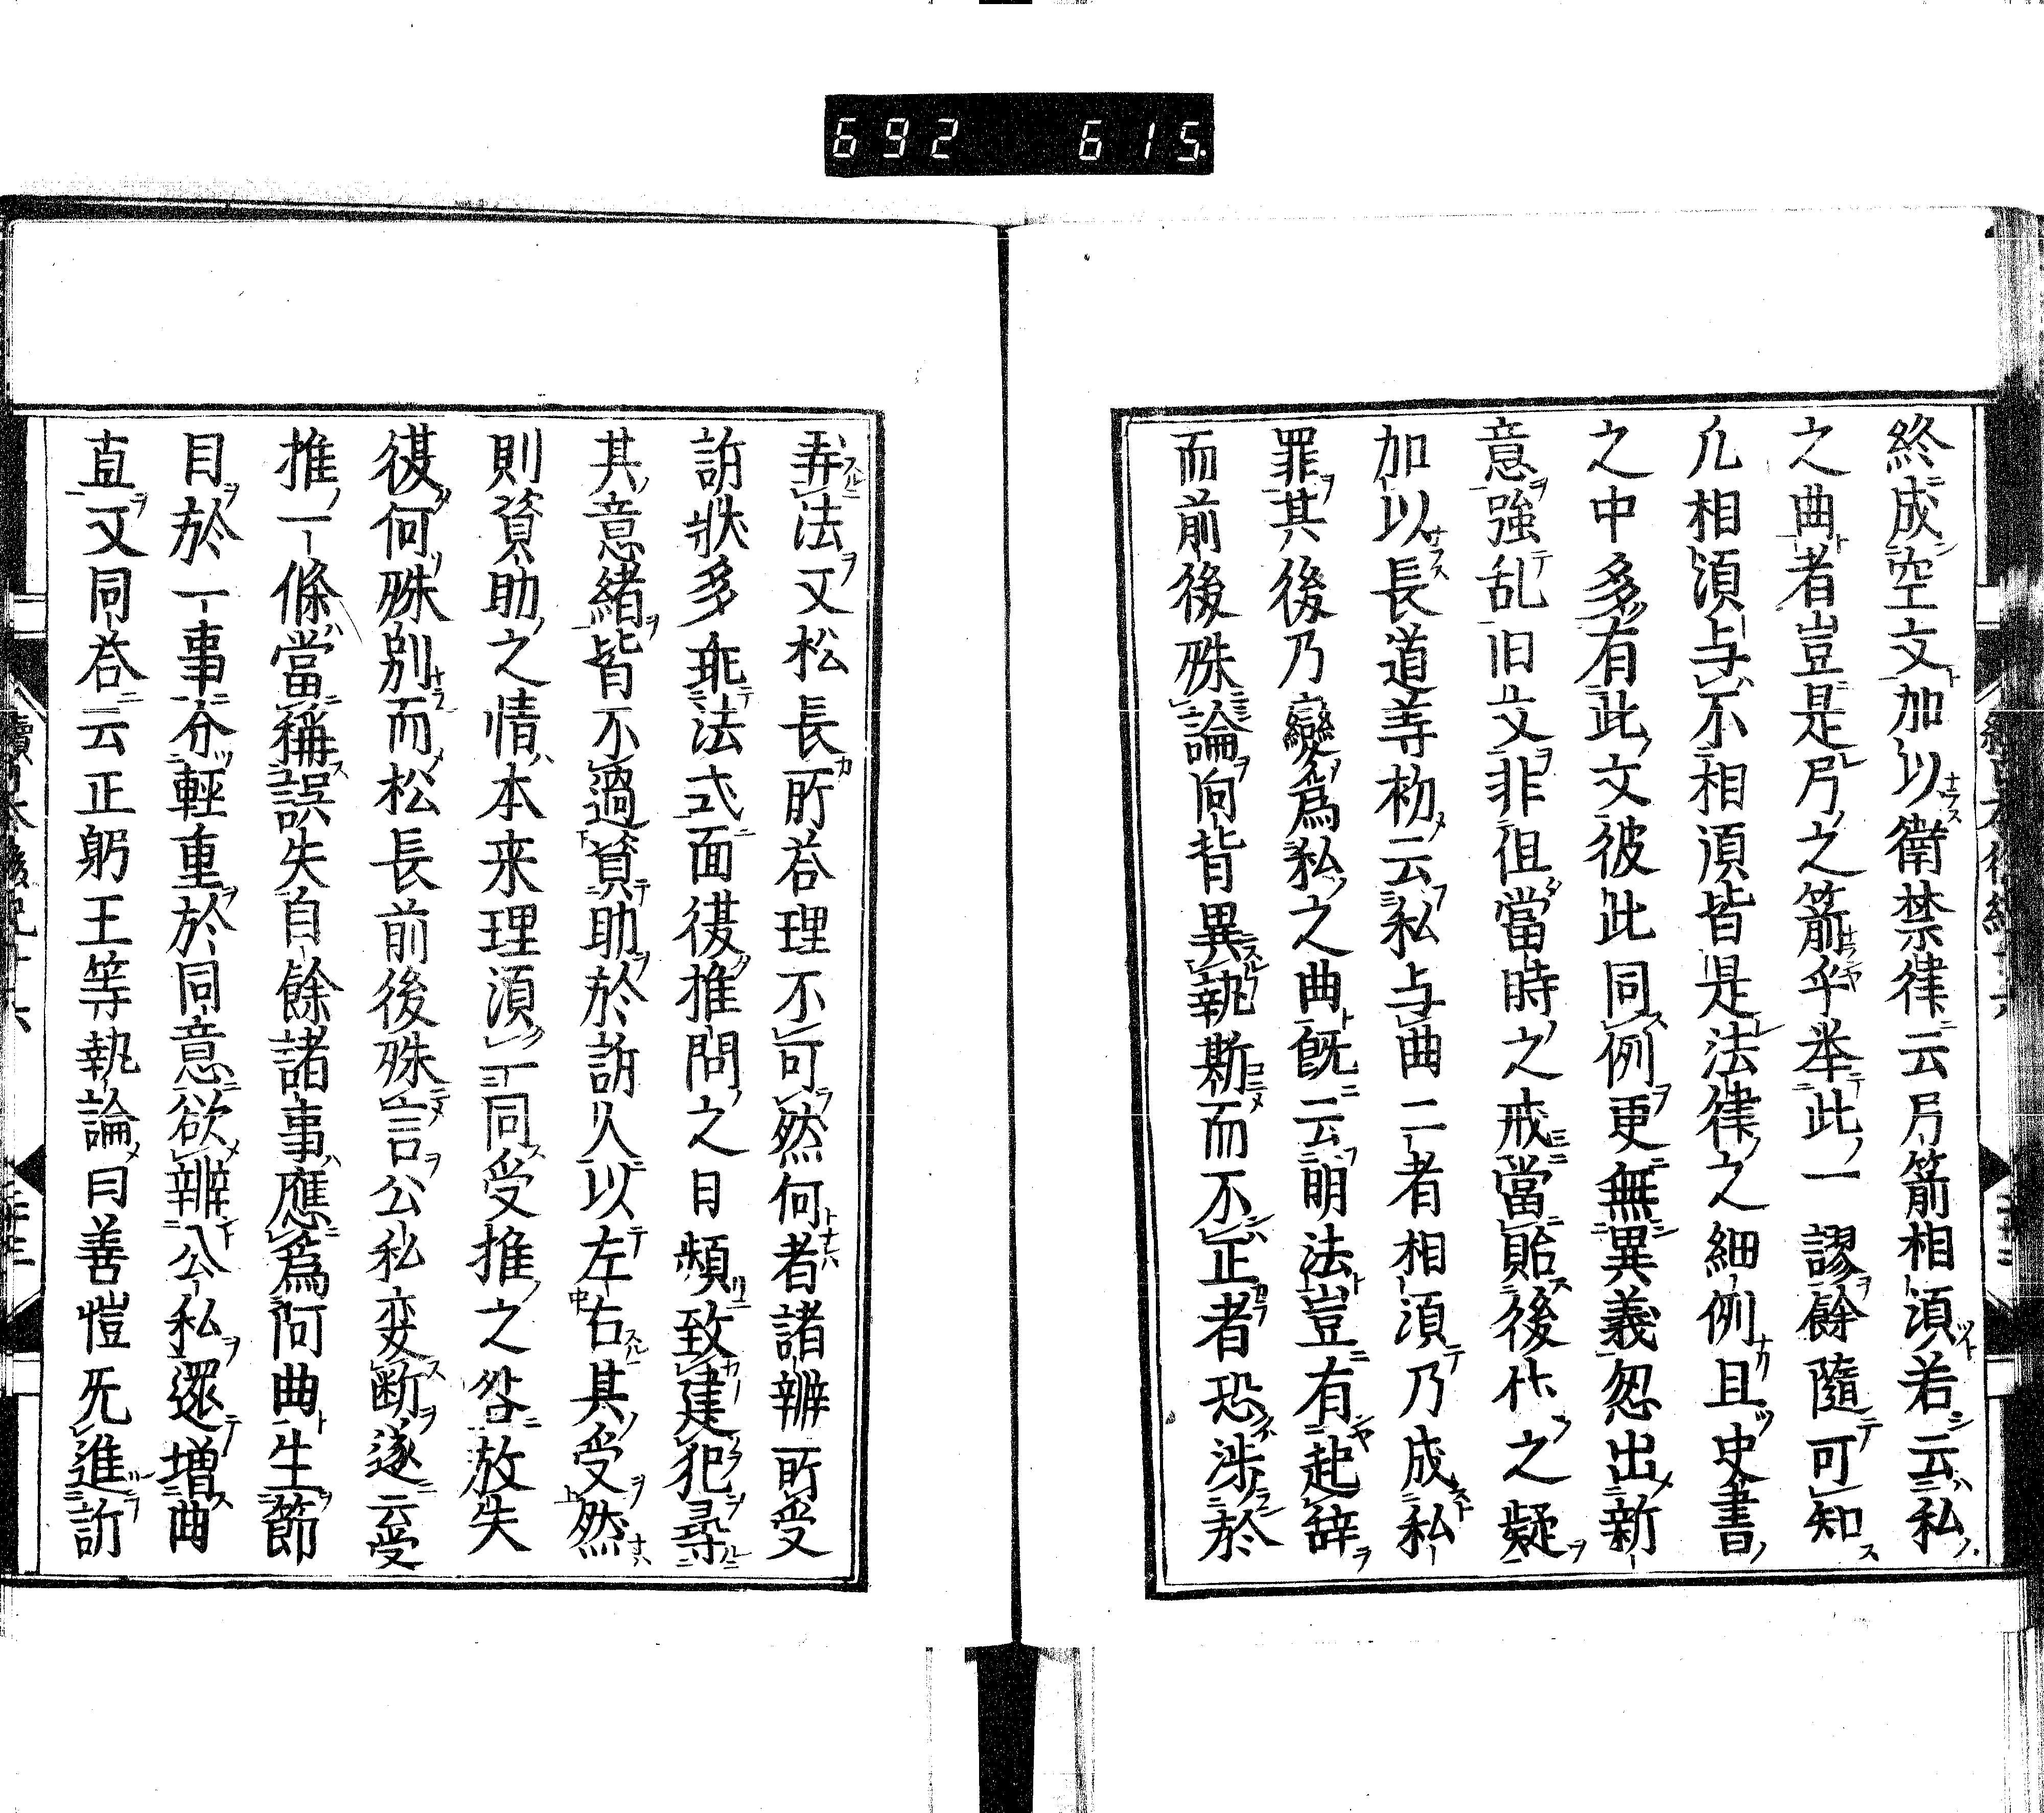 692 615
終成空文加以衛禁律云弓箭相湏若云私
之曲者豈是弓之箭乎举此一謬餘隨可知
凢相湏与不相湏皆是法律之細例且史書
之中多有此文彼此同例更無異義忽出新
意強乱旧文非伹當時之戒當貽後代之疑
加以長道等初云私与曲二者相湏乃成私
罪其後乃變爲私之曲既云明法豈有起辞
而前後殊論向背異執斯而不正者恐渉於
弄法又松長所荅理不可然何者諸辨所受
訴狀多乖法式面復推問之日頻致建犯尋
其意緒皆不過資助於訴人以左右其受然
則資助之情本来理湏一同受推之咎放失
復何殊別而松長前後殊言公私変断遂云受
推一條當稱誤失自餘諸事應爲阿曲生節
目於一事分輕重於同意欲辨公私還増曲
直又同荅云正躬王等執論曰善愷旡進訴